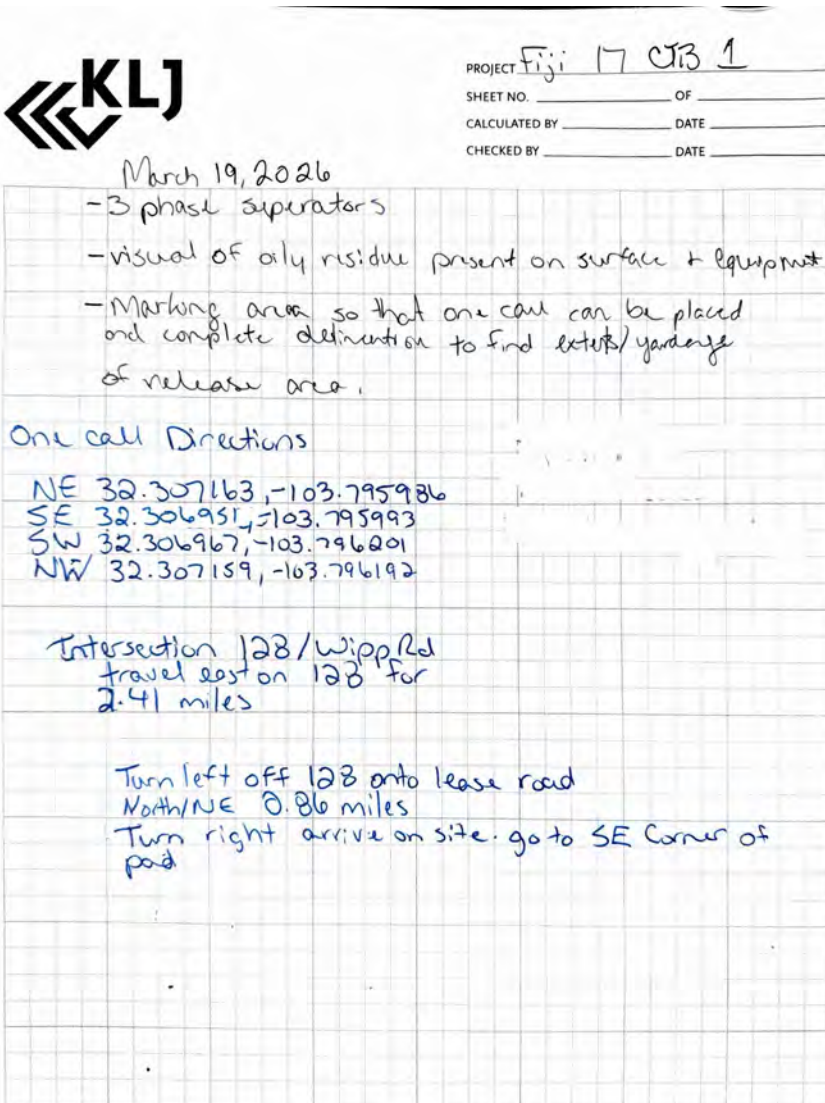 KLJ
PROJECT Fiji 17 CTB 1
SHEET NO. OF
CALCULATED BY DATE
CHECKED BY DATE
March 19, 2026
-3 phase seperators
-visual of oily residue present on surface + equipmnt
-Marking area so that one call can be placed
and complete delineation to find extents/yardage
of release area.
One call Directions
NE 32.307163,-103.795986
SE 32.306951,-103.795993
SW 32.306967,-103.796201
NW 32.307159,-103.796192
Intersection 128/Wipp Rd
travel east on 128 for
2.41 miles
Turn left off 128 onto lease road
North/NE 0.86 miles
Turn right arrive on site. go to SE Corner of
pad